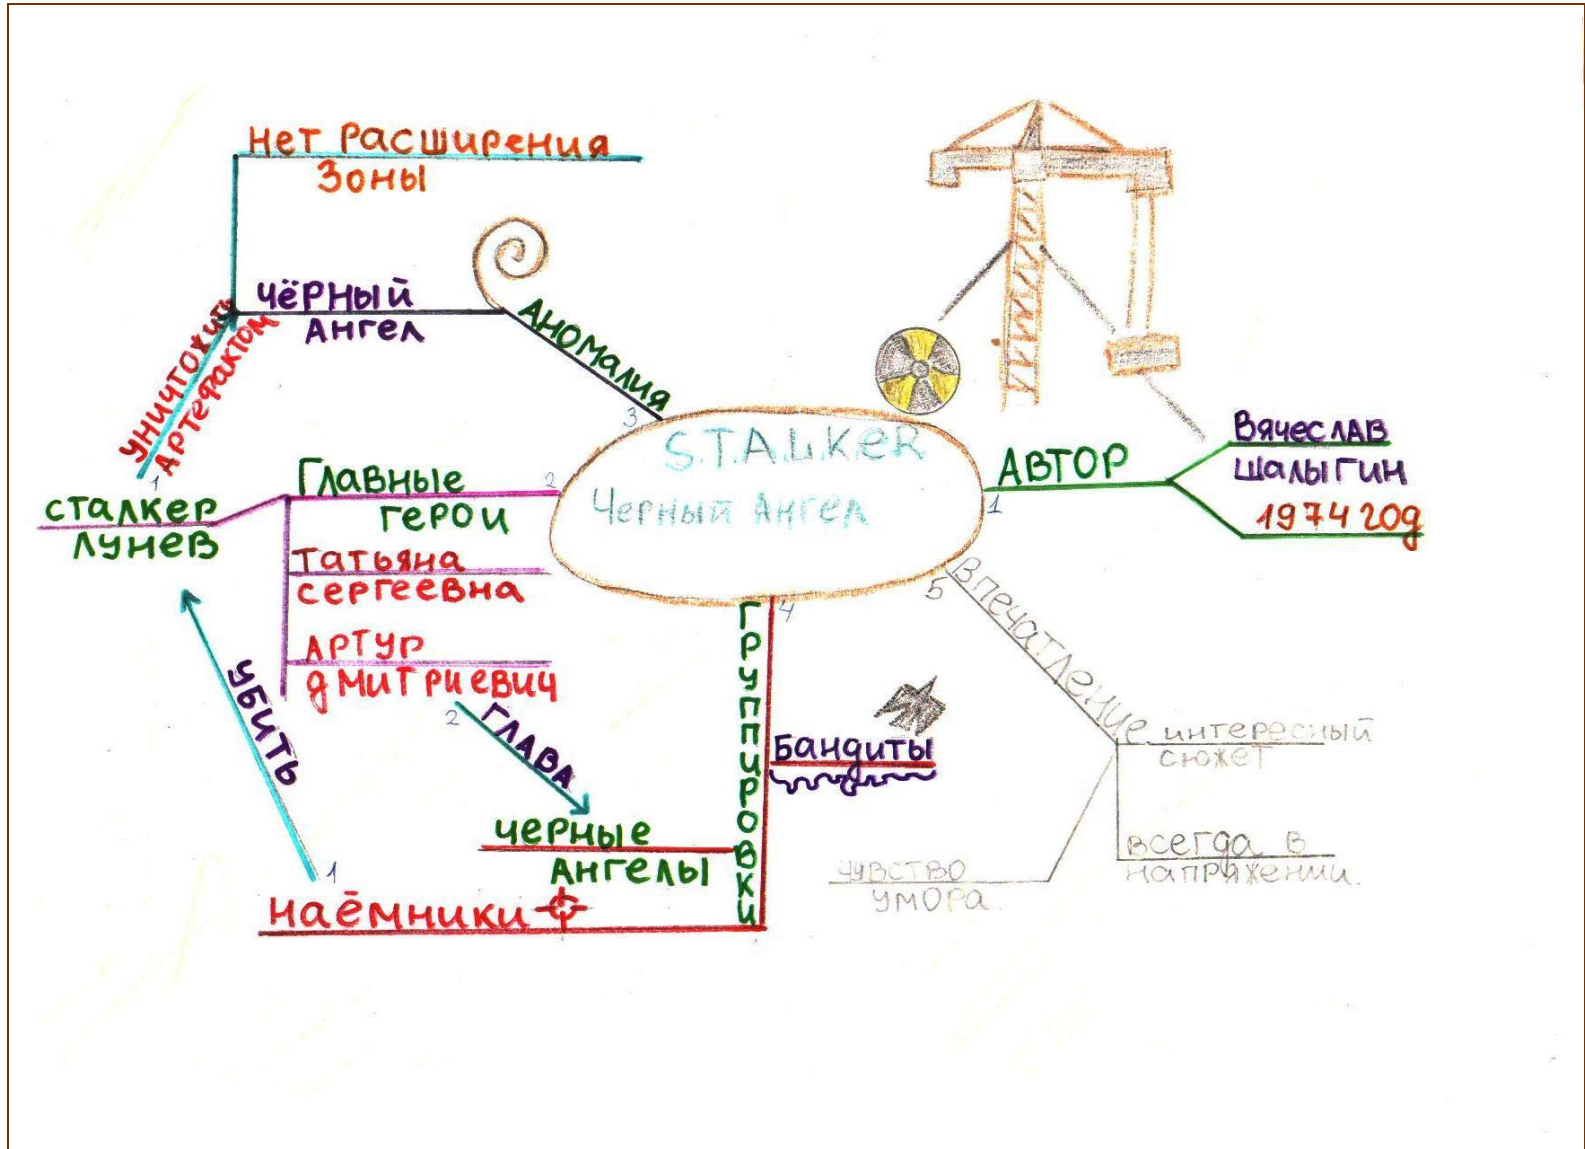 S.T.A.L.K.E.R
Черный Ангел
1
АВТОР
Вячеслав
Шалыгин
1974 год
2
Главные
герои
сталкер
Лунев
Татьяна
Сергеевна
Артур
Дмитриевич
1
уничтожить
артефактом
3
Аномалия
Чёрный
Ангел
нет расширения
Зоны
4
Группировки
Бандиты
черные
Ангелы
наёмники
2
глава
1
убить
5
впечатление
интересный
сюжет
всегда в
напряжении.
чувство
умора.